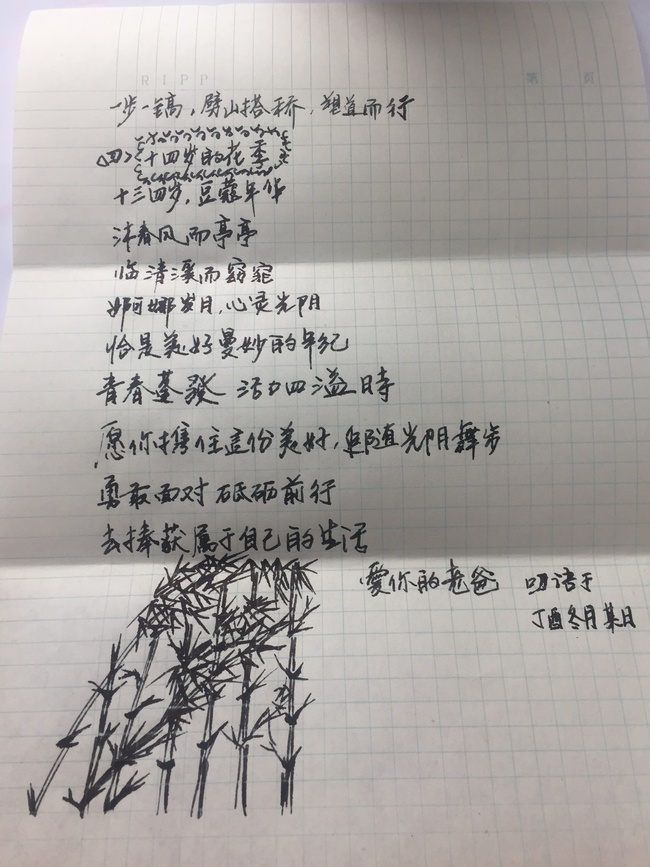 RIPP 第 页
一步一镐，劈山搭桥，塑道而行
<四>十四岁的花季
十三四岁，豆蔻年华
沐春风而亭亭
临清溪而窈窕
婀娜岁月，心灵光阴
恰是美好曼妙的年纪
青春蓬發 活力四溢時
愿你擕住這份美好，追随光阴舞步
勇敢面对 砥砺前行
去捧获属于自己的生活
愛你的老爸 叨语于
丁酉冬月某日